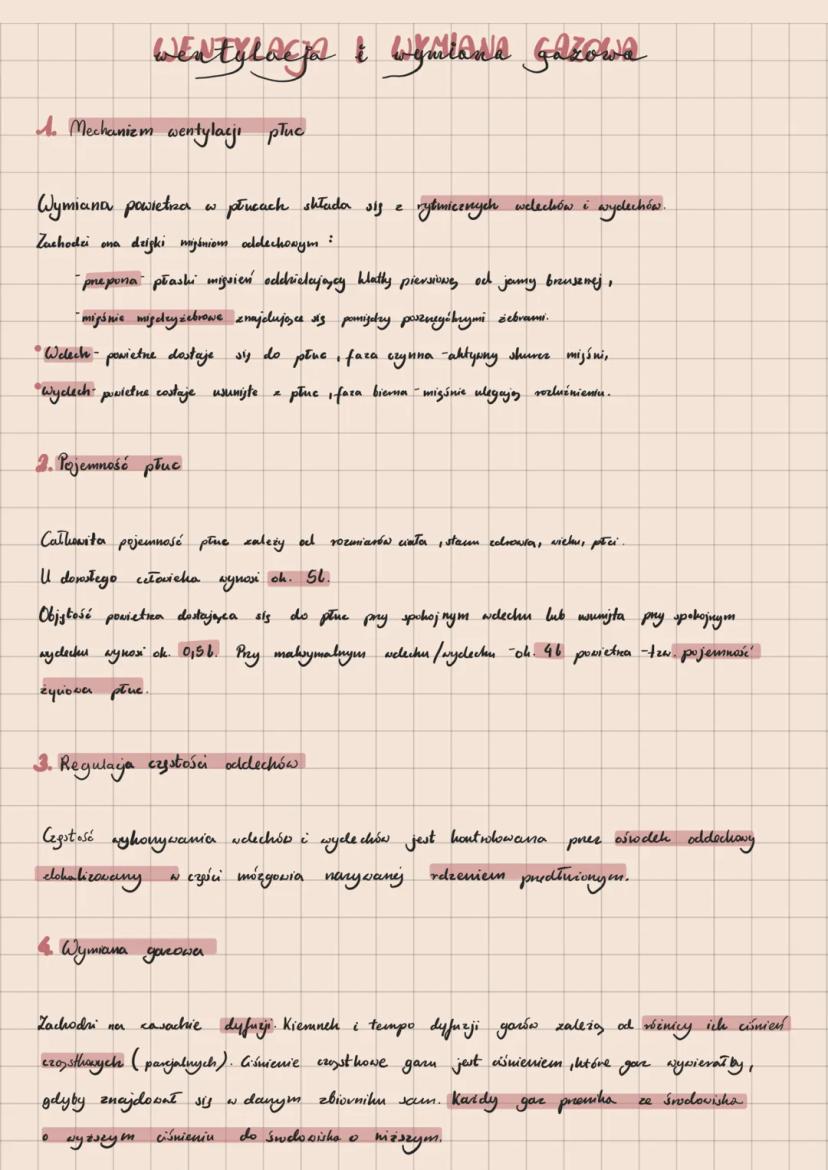 wentylacja i wymiana gazowa
1. Mechanizm wentylacji płuc
Wymiana powietrza w płucach składa się z rytmicznych wdechów i wydechów.
Zachodzi ona dzięki mięśniom oddechowym :
- przepona - płaski mięsień oddzielający klatkę piersiową od jamy brzusznej,
- mięśnie międzyżebrowe znajdujące się pomiędzy poszczególnymi żebrami.
• Wdech - powietrze dostaje się do płuc, faza czynna - aktywny skurcz mięśni,
• Wydech - powietrze zostaje usunięte z płuc, faza bierna - mięśnie ulegają rozluźnieniu.
2. Pojemność płuc
Całkowita pojemność płuc zależy od rozmiarów ciała, stanu zdrowia, wieku, płci.
U dorosłego człowieka wynosi ok. 5l.
Objętość powietrza dostająca się do płuc przy spokojnym wdechu lub usunięta przy spokojnym
wydechu wynosi ok. 0,5l. Przy maksymalnym wdechu/wydechu - ok. 4l powietrza - tzw. pojemność
życiowa płuc.
3. Regulacja częstości oddechów
Częstość wykonywania wdechów i wydechów jest kontrolowana przez ośrodek oddechowy
zlokalizowany w części mózgowia nazywanej rdzeniem przedłużonym.
4. Wymiana gazowa
Zachodzi na zasadzie dyfuzji. Kierunek i tempo dyfuzji gazów zależą od różnicy ich ciśnień
cząstkowych (parcjalnych). Ciśnienie cząstkowe gazu jest ciśnieniem, które gaz wywierałby,
gdyby znajdował się w danym zbiorniku sam. Każdy gaz przenika ze środowiska
o wyższym ciśnieniu do środowiska o niższym.